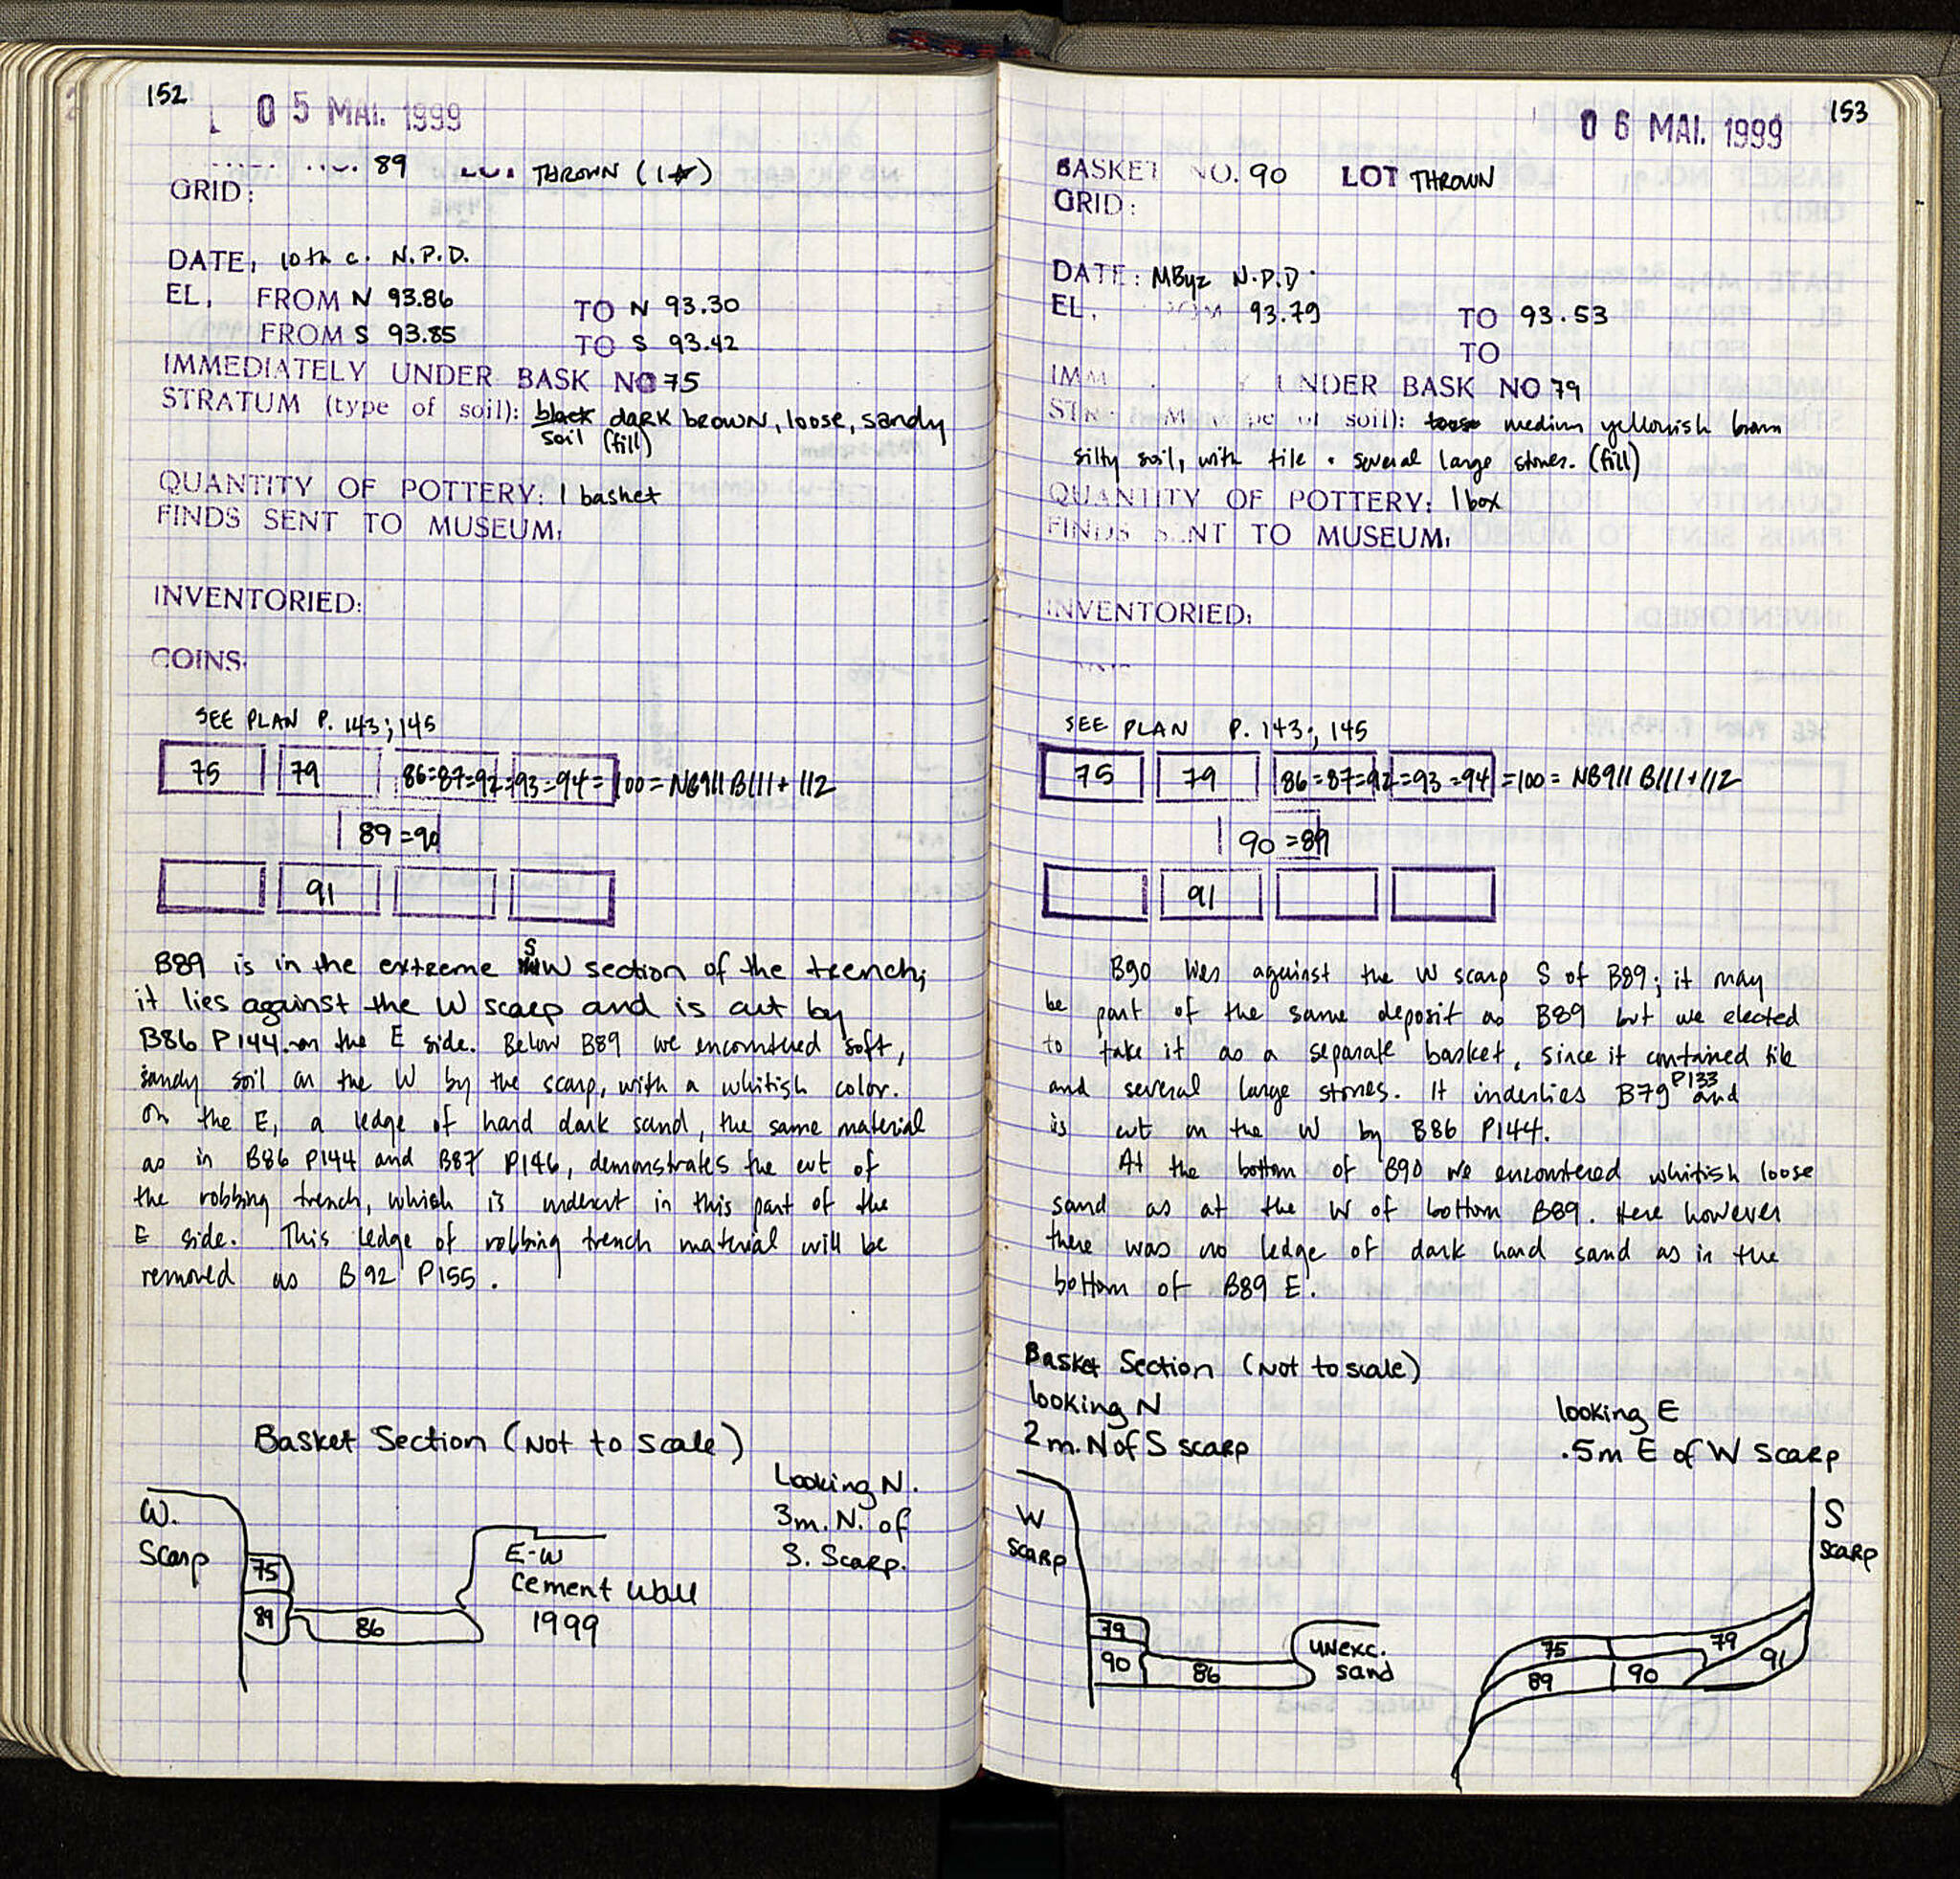 152
05 MAI. 1999
89 THROWN (1☆)
GRID:
DATE, 10th c. N.P.D.
EL, FROM N 93.86 TO N 93.30
FROM S 93.85 TO S 93.42
IMMEDIATELY UNDER BASK NO 75
STRATUM (type of soil): black dark brown, loose, sandy
soil (fill)
QUANTITY OF POTTERY: 1 basket
FINDS SENT TO MUSEUM:
INVENTORIED:
COINS:
SEE PLAN P. 143; 145
75 79 86=87=92=93=94=100= NB911 B111+112
89=90
91
B89 is in the extreme SW section of the trench;
it lies against the W scarp and is cut by
B86 P144 on the E side. Below B89 we encountered soft,
sandy soil on the W by the scarp, with a whitish color.
On the E, a ledge of hard dark sand, the same material
as in B86 P144 and B87 P146, demonstrates the cut of
the robbing trench, which is undercut in this part of the
E side. This ledge of robbing trench material will be
removed as B92 P155.
Basket Section (Not to scale)
Looking N.
3m. N. of
S. Scarp.
W.
Scarp
75
89
86
E-W
cement wall
1999
153
06 MAI. 1999
BASKET NO. 90 LOT THROWN
GRID:
DATE: MByz N.P.D.
EL, 93.79 TO 93.53
TO
IMM UNDER BASK NO 79
soil): loose medium yellowish brown
silty soil, with tile + several large stones. (fill)
QUANTITY OF POTTERY: 1 box
FINDS SENT TO MUSEUM:
INVENTORIED:
SEE PLAN P. 143; 145
75 79 86=87=92=93=94=100= NB911 B111+112
90=89
91
B90 lies against the W scarp S of B89; it may
be part of the same deposit as B89 but we elected
to take it as a separate basket, since it contained tile
and several large stones. It underlies B79 P133 and
is cut on the W by B86 P144.
At the bottom of B90 we encountered whitish loose
sand as at the W of bottom B89. Here however
there was no ledge of dark hard sand as in the
bottom of B89 E.
Basket Section (Not to scale)
looking N
2 m. N of S scarp
looking E
.5m E of W scarp
W
scarp
79
90
86
unexc.
sand
S
scarp
75 79
89 90 91